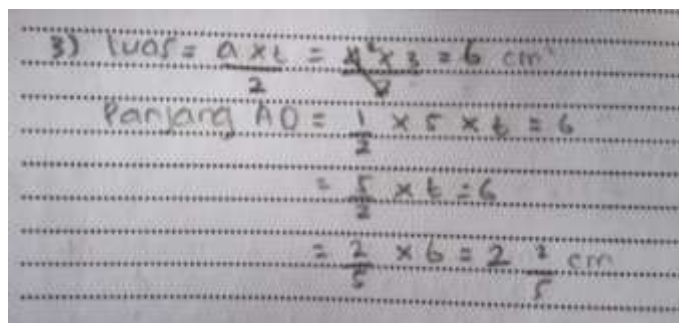 3) Luas = a x t / 2 = 4² x 3 / 2 = 6 cm²
Panjang AD = 1/2 x 5 x t = 6
= 5/2 x t = 6
= 2/5 x 6 = 2 2/5 cm